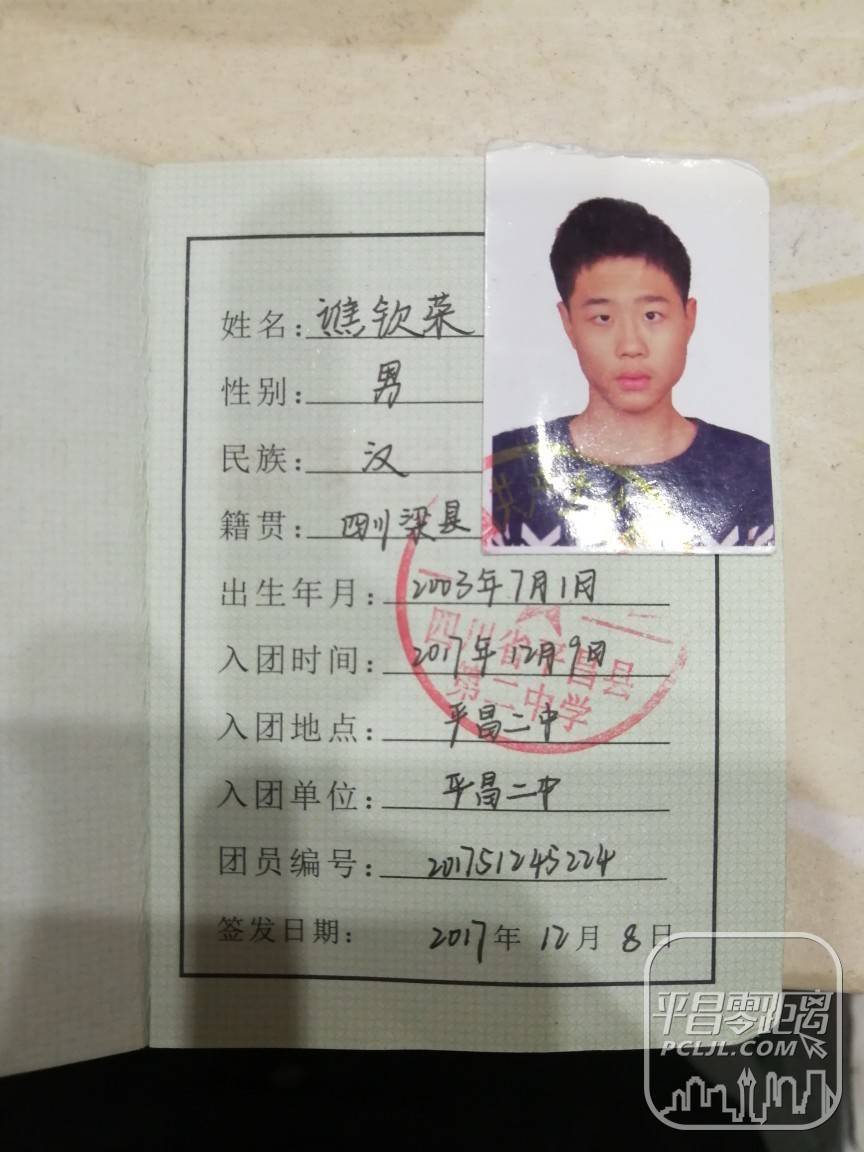 姓名：谯钦荣
性别：男
民族：汉
籍贯：四川渠县
出生年月：2003年7月1日
入团时间：2017年12月9日
四川省平昌县
第二中学
入团地点：平昌二中
入团单位：平昌二中
团员编号：201751245224
签发日期：2017年12月8日
平昌零距离
PCLJL.COM